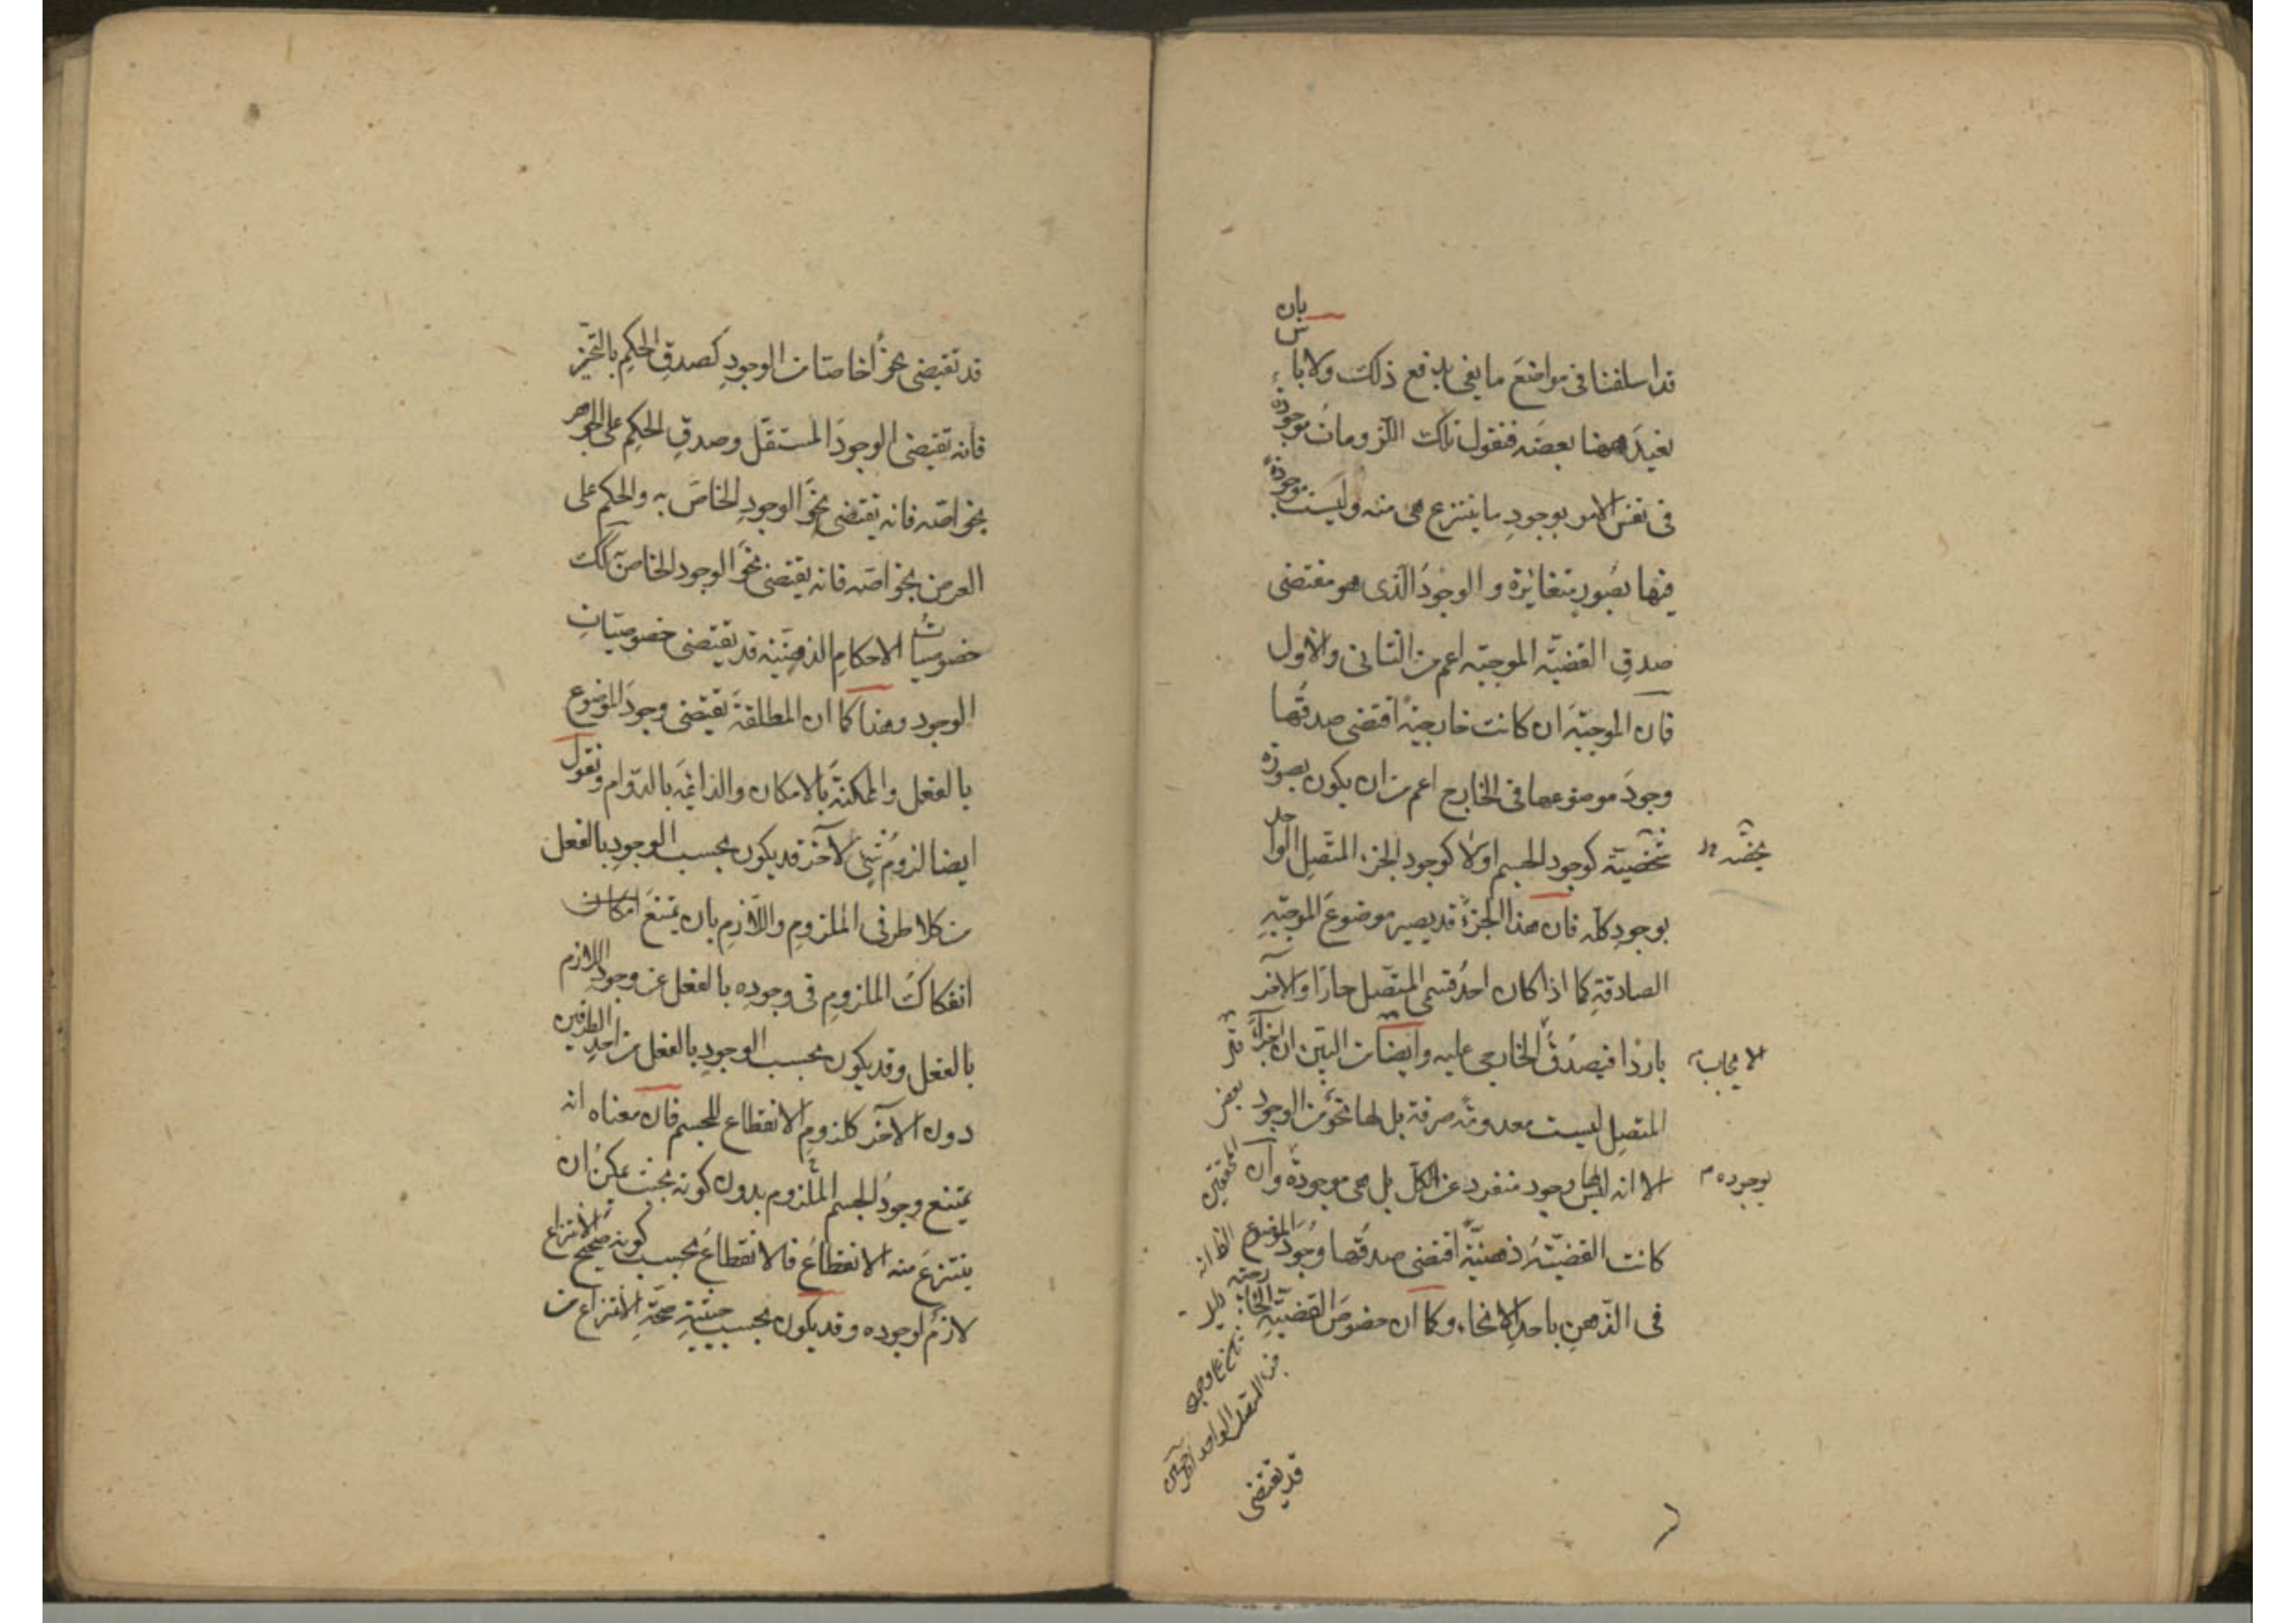 قد اسلفنا فی مواضع ما یفی بدفع ذلک ولا باس بان
نعید ههنا بعضه فنقول تلک اللزومات موجودة
فی نفس الامر بوجود ما ینتزع هی منه ولیست موجودة
فیها بصور متغایرة والوجود الذی هو مقتضی
صدق القضیة الموجبه اعم من الثانی والاول
فان الموجبة ان کانت خارجیة اقتضی صدقها
وجود موضوعها فی الخارج اعم من ان یکون بصورة
شخصیة کوجود الجسم اولا کوجود الجزء المتصل الواحد
بوجود کله فان هذا الجزء قد یصیر موضوع الموجبة
الصادقة کما اذا کان احد قسمی المتصل حارا والآخر
باردا فیصدق الخارجی علیه وایضا من البین ان اجزاء
الایجاب
المتصل لیست معدومة صرفة بل لها نحو من الوجود
الا انه لیس لها وجود منفرد عن الکل بل هی موجودة وان
بوجوده
کانت القضیة ذهنیة اقتضی صدقها وجود الموضوع
فی الذهن باحد الانحاء وکما ان خصوص القضیة الخارجیة
بعض
المحققین
جزء المتصل الواحد
قد تقتضی
قد تقتضی نحوا خاصا من الوجود کصدق الحکم بالتحیز
فانه تقتضی الوجود المستقل وصدق الحکم علی الجوهر
بخواصه فانه تقتضی نحو الوجود الخاص به والحکم علی
العرض بخواصه فانه یقتضی نحو الوجود الخاص کذلک
خصوصیات الاحکام الذهنیة قد یقتضی خصوصیات
الوجود وهذا کما ان المطلقة تقتضی وجود الموضوع
بالفعل والممکنة بالامکان والدائمة بالدوام ونقول
ایضا لزوم شیء لآخر قد یکون بحسب الوجود بالفعل
من کلا طرفی الملزوم واللازم بان یمتنع امکان
انفکاک الملزوم فی وجوده بالفعل عن وجود اللازم
بالفعل وقد یکون بحسب الوجود بالفعل من احد الطرفین
دون الآخر کلزوم الانقطاع للجسم فان معناه انه
یمتنع وجود الجسم الملزوم بدون کونه بحیث یمکن ان
ینتزع منه الانقطاع فالانقطاع بحسب کونه صحیح الانتزاع
لازم لوجوده وقد یکون بحسب حیثیة صحة الانتزاع من